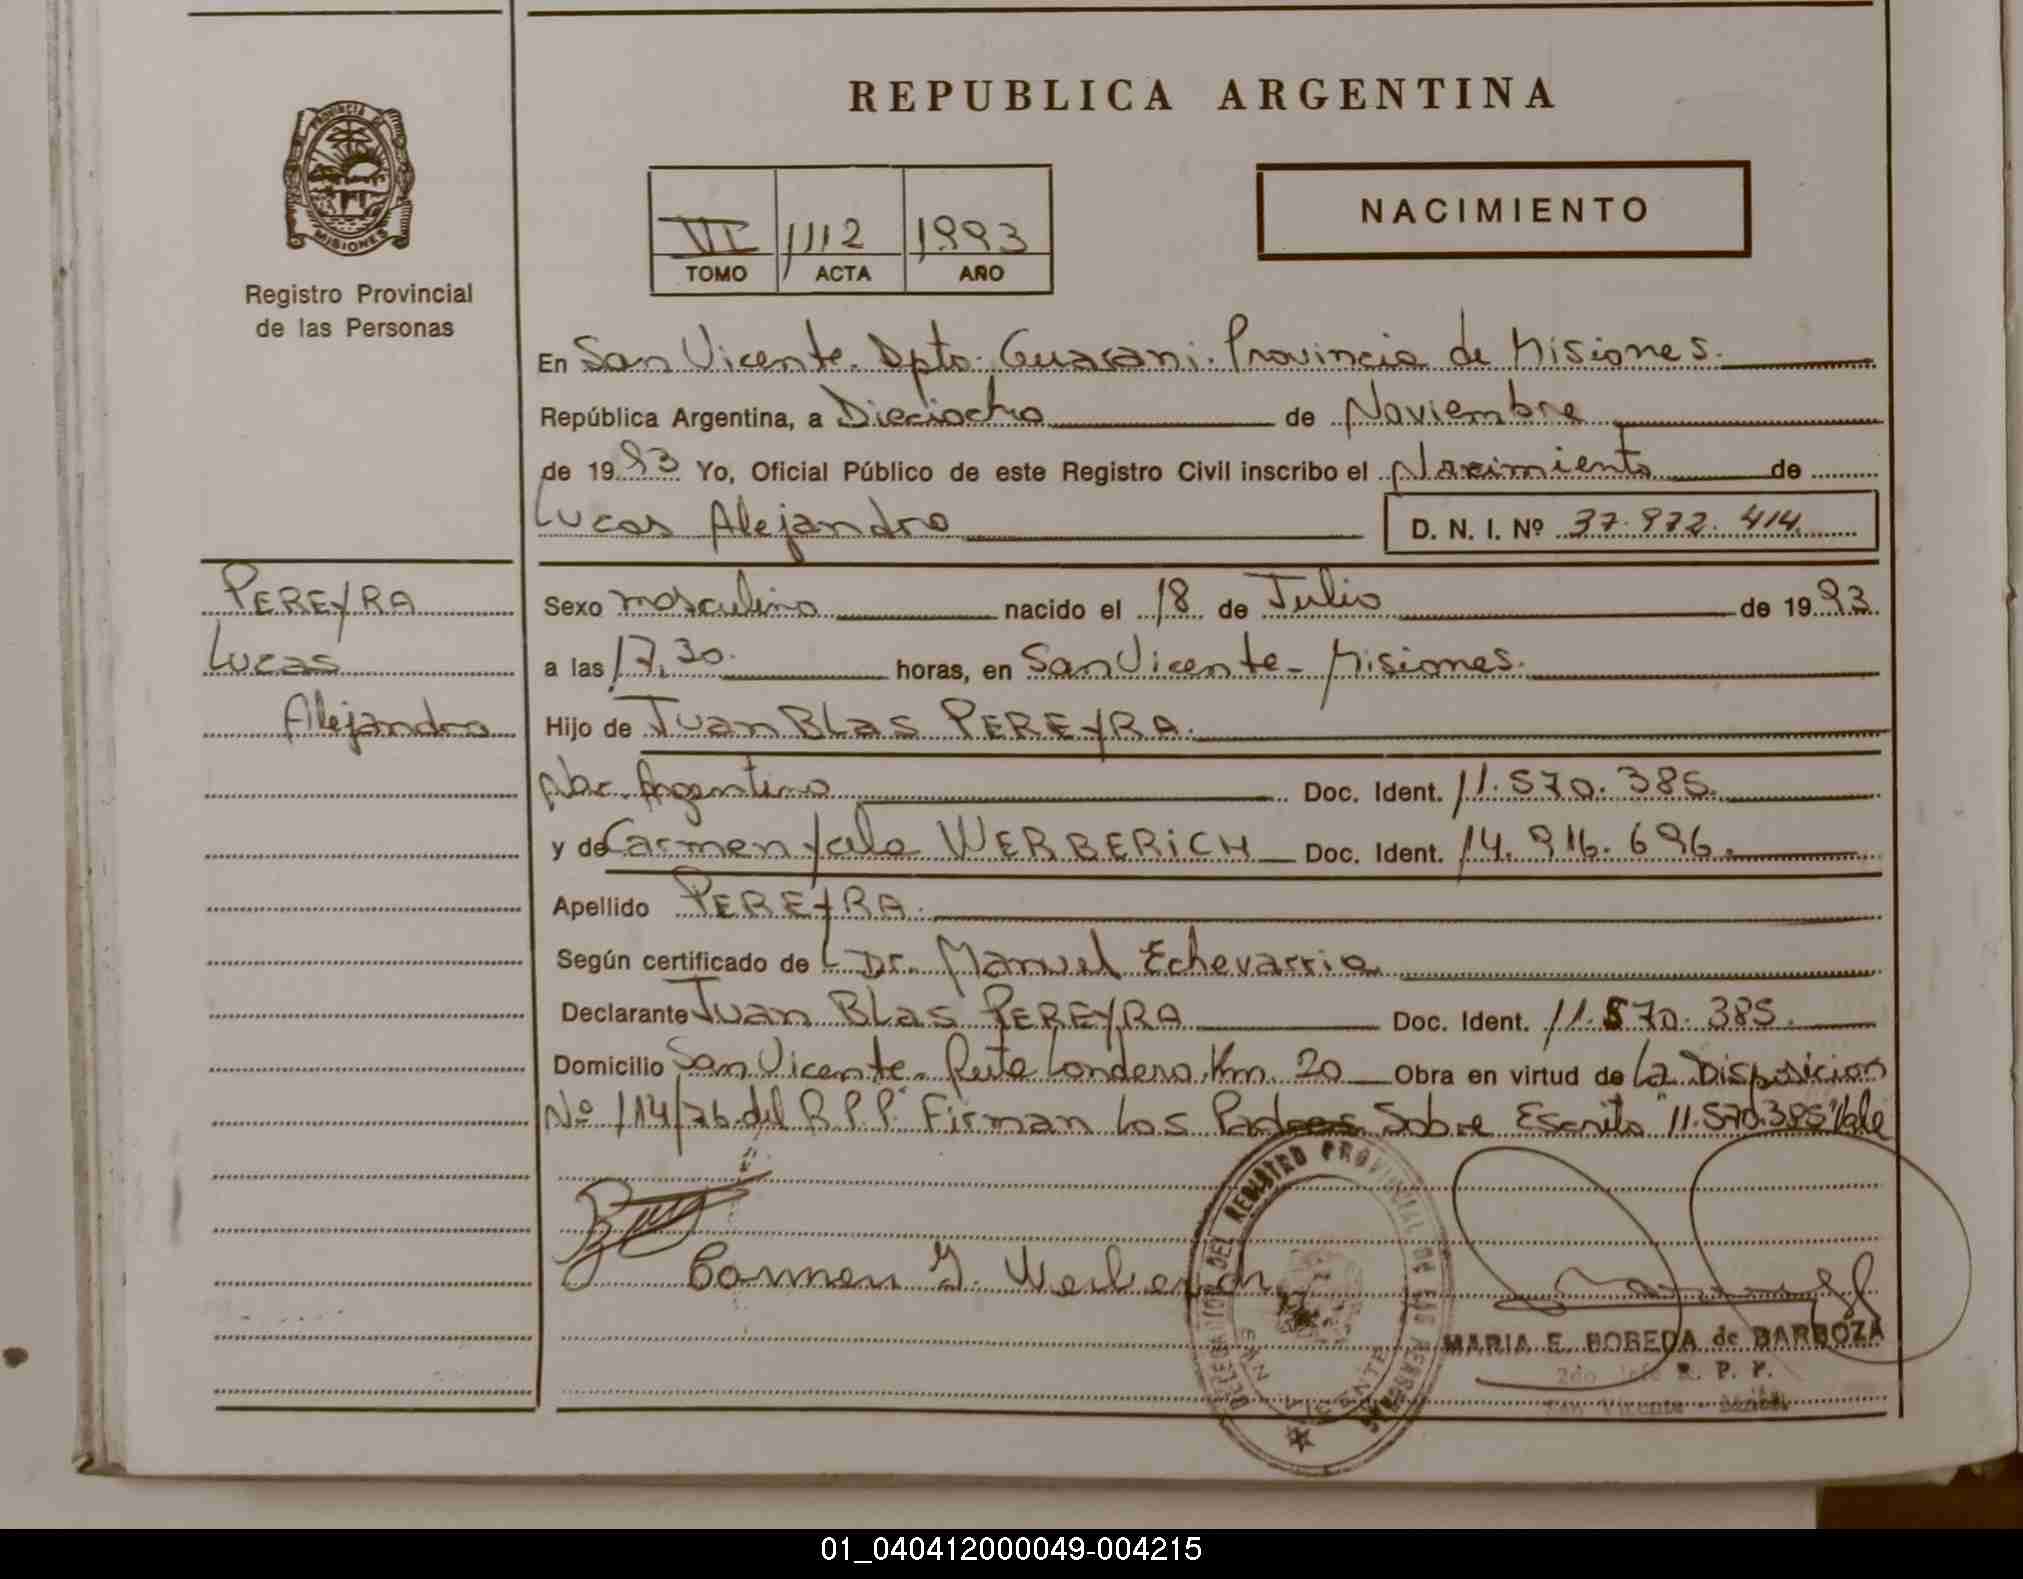 REPUBLICA ARGENTINA
PROVINCIA DE
MISIONES
Registro Provincial
de las Personas
VI 1112 1993
TOMO ACTA AÑO
NACIMIENTO
En San Vicente. Dpto. Guarani. Provincia de Misiones.
República Argentina, a Dieciocho de Noviembre
de 1993 Yo, Oficial Público de este Registro Civil inscribo el Nacimiento de
Lucas Alejandro D. N. I. Nº 37.972.414
PEREYRA
Lucas
Alejandro
Sexo masculino nacido el 18 de Julio de 1993
a las 17,30. horas, en San Vicente - Misiones.
Hijo de Juan BLas PEREYRA.
Nac. Argentino Doc. Ident. 11.570.385.
y de Carmen WERBERiCH Doc. Ident. 14.916.696.
Apellido PEREYRA.
Según certificado de Dr. Manuel Echevarria
Declarante Juan BLas PEREYRA Doc. Ident. 11.570.385.
Domicilio San Vicente - Ruta Londero Km. 20 Obra en virtud de La Disposicion
Nº 114/76 del R.P.P. Firman Los Padres Sobre Escrito "11.570.385" Vale
Carmen Y. Werberich
DELEGACION DEL REGISTRO PROVINCIAL DE LAS PERSONAS
SAN VICENTE
MARIA E. BOBEDA de BARBOZA
2do Jefe R. P. P.
San Vicente - Misiones
01_040412000049-004215